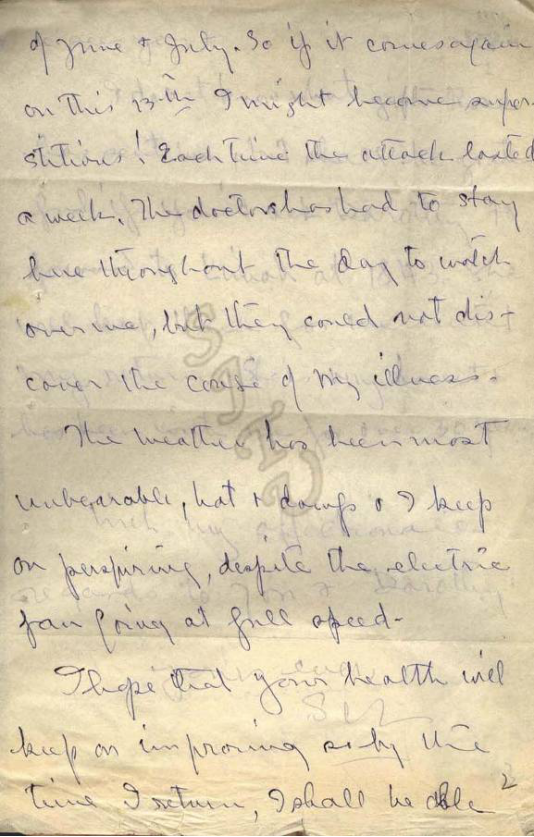 of June & July. So if it comes again
on this 13th I might become super-
stitious! Each time the attack lasted
a week. The doctors has had to stay
here throughout the day to watch
over me, but they could not dis-
cover the cause of my illness.
The weather has been most
unbearable, hot & damp & I keep
on perspiring, despite the electric
fan going at full speed-
I hope that your health will
keep on improving so by the
time I return, I shall be able
2